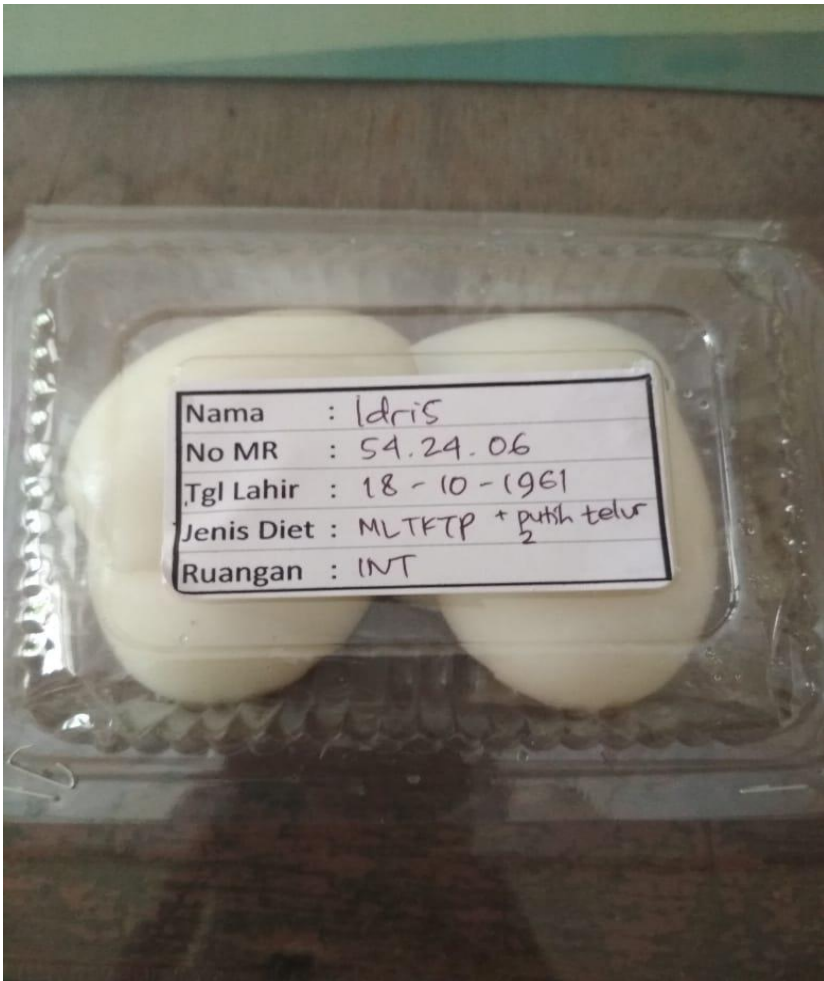 Nama : Idris
No MR : 54.24.06
Tgl Lahir : 18-10-1961
Jenis Diet : MLTKTP + putih telur
2
Ruangan : INT